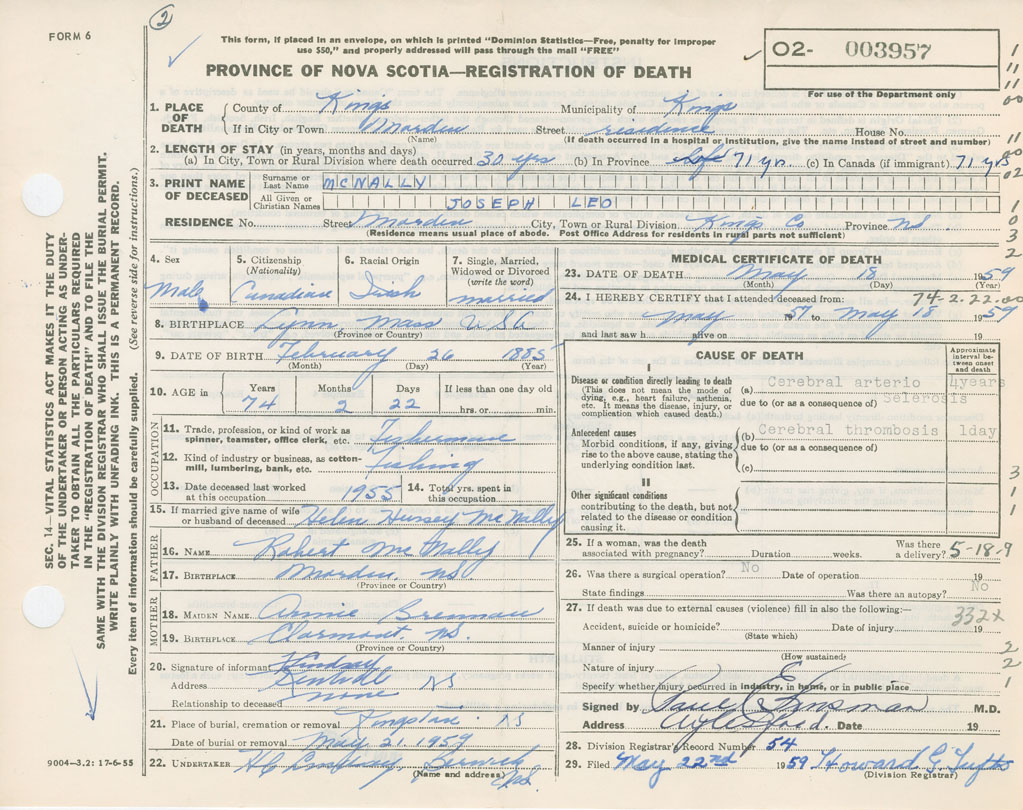 2
FORM 6
This form, if placed in an envelope, on which is printed "Dominion Statistics—Free, penalty for improper
use $50," and properly addressed will pass through the mail "FREE"
02- 003957
For use of the Department only
PROVINCE OF NOVA SCOTIA—REGISTRATION OF DEATH
1. PLACE OF DEATH { County of Kings Municipality of Kings
If in City or Town Morden Street residence House No.
(Name) (If death occurred in a hospital or institution, give the name instead of street and number)
2. LENGTH OF STAY (in years, months and days)
(a) In City, Town or Rural Division where death occurred 30 yrs (b) In Province 71 yrs (c) In Canada (if immigrant) 71 yrs
3. PRINT NAME OF DECEASED { Surname or Last Name MCNALLY
All Given or Christian Names JOSEPH LEO
RESIDENCE No. Street Morden City, Town or Rural Division Kings Co Province NS
(Residence means usual place of abode. Post Office Address for residents in rural parts not sufficient)
4. Sex Male
5. Citizenship (Nationality) Canadian
6. Racial Origin Irish
7. Single, Married, Widowed or Divorced (write the word) married
8. BIRTHPLACE Lynn, Mass USA
(Province or Country)
9. DATE OF BIRTH February 26 1885
(Month) (Day) (Year)
10. AGE in { Years 74 Months 2 Days 22 If less than one day old hrs. or min.
OCCUPATION
11. Trade, profession, or kind of work as spinner, teamster, office clerk, etc. Fisherman
12. Kind of industry or business, as cotton-mill, lumbering, bank, etc. Fishing
13. Date deceased last worked at this occupation 1955 14. Total yrs. spent in this occupation
15. If married give name of wife or husband of deceased Helen Hussey McNally
FATHER
16. NAME Robert McNally
17. BIRTHPLACE Morden, NS.
(Province or Country)
MOTHER
18. MAIDEN NAME Annie Brennan
19. BIRTHPLACE Clarmont, NS.
(Province or Country)
20. Signature of informant Lindsay
Address Kentville NS
Relationship to deceased none
21. Place of burial, cremation or removal Kingston NS
Date of burial or removal May 21, 1959
22. UNDERTAKER Berwick NS.
(Name and address)
9004—3.2: 17-6-55
SEC. 14—VITAL STATISTICS ACT MAKES IT THE DUTY
OF THE UNDERTAKER OR PERSON ACTING AS UNDER-
TAKER TO OBTAIN ALL THE PARTICULARS REQUIRED
IN THE "REGISTRATION OF DEATH" AND TO FILE THE
SAME WITH THE DIVISION REGISTRAR WHO SHALL ISSUE THE BURIAL PERMIT.
WRITE PLAINLY WITH UNFADING INK. THIS IS A PERMANENT RECORD.
Every item of information should be carefully supplied. (See reverse side for instructions.)
MEDICAL CERTIFICATE OF DEATH
23. DATE OF DEATH May 18 1959
(Month) (Day) (Year)
24. I HEREBY CERTIFY that I attended deceased from: 74-2.22.00
May 1957 to May 18 1959
and last saw h alive on 19
CAUSE OF DEATH
Approximate interval between onset and death
I
Disease or condition directly leading to death
(This does not mean the mode of dying, e.g., heart failure, asthenia, etc. It means the disease, injury, or complication which caused death.)
(a) Cerebral arterio Sclerosis 4years
due to (or as a consequence of)
Antecedent causes
Morbid conditions, if any, giving rise to the above cause, stating the underlying condition last.
(b) Cerebral thrombosis 1day
due to (or as a consequence of)
(c)
II
Other significant conditions
contributing to the death, but not related to the disease or condition causing it.
25. If a woman, was the death associated with pregnancy? Duration weeks. Was there a delivery? 5-18-9
26. Was there a surgical operation? No Date of operation 19
State findings Was there an autopsy? No
27. If death was due to external causes (violence) fill in also the following:— 332x
Accident, suicide or homicide? Date of injury 19
(State which)
Manner of injury
(How sustained)
Nature of injury
Specify whether injury occurred in industry, in home, or in public place
Signed by Paul E Kinsman M.D.
Address Aylesford. Date 19
28. Division Registrar's Record Number 54
29. Filed May 22nd 1959 Howard G. Tufts
(Division Registrar)